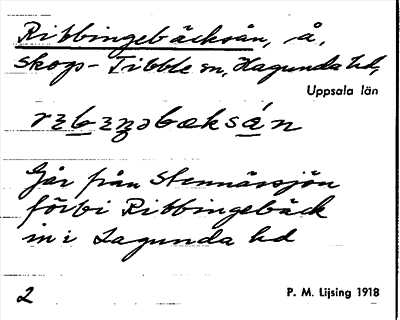 Ribbingebäcksån, å,
Skogs-Tibble sn, Hagunda hd,
Uppsala län
rɛbɛŋəbæksån
Går från Stennässjön
förbi Ribbingebäck
in i Lagunda hd
2
P. M. Lijsing 1918